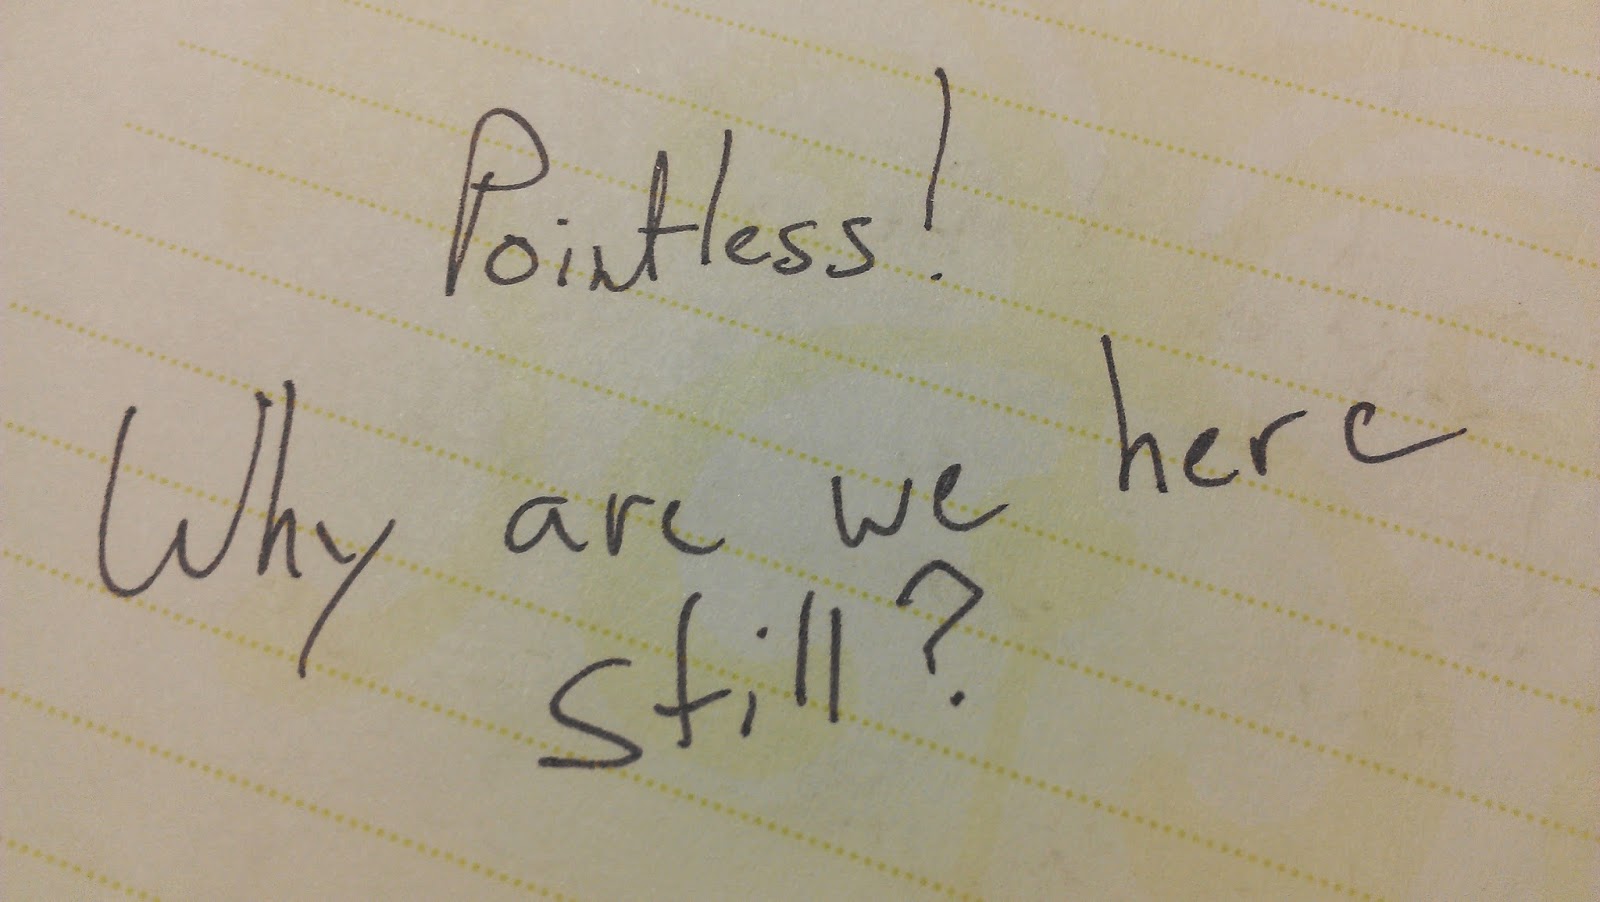 Pointless!
Why are we here
still?